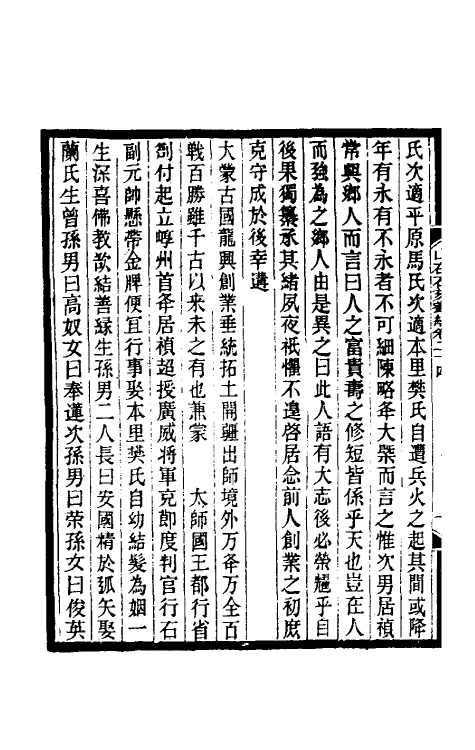 氏次適平原馬氏次適本里樊氏自遭兵火之起其間或降
年有永有不永者不可細陳略夅大槩而言之惟次男居禎
常與鄉人而言曰人之富貴壽之修短皆係乎天也豈在人
而強為之鄉人由是異之曰此人語有大志後必榮耀乎自
後果獨纂承其緒夙夜祇懼不遑啓居念前人創業之初庶
克守成於後幸遘
大蒙古國龍興創業垂統拓土開疆出師境外万夅万全百
戰百勝雖千古以來未之有也兼蒙　太師國王都行省
劄付起立崞州首夅居禎超授廣威將軍克節度判官行石
副元帥懸帶金牌便冝行事娶本里樊氏自幼結髮為姻一
生深喜佛教欲結善緣生孫男二人長曰安國精於弧矢娶
蘭氏生曾孫男曰高奴女曰奉蓮次孫男曰荣孫女曰俊英